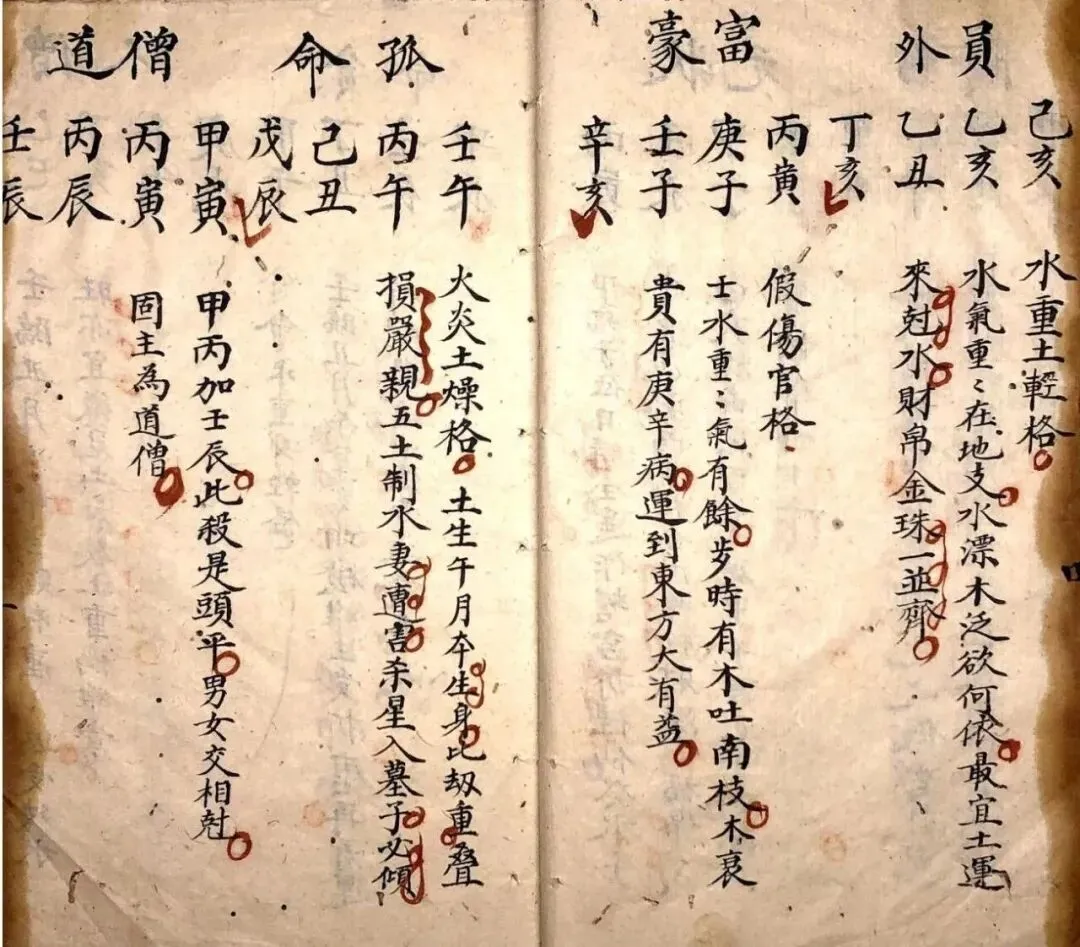 己亥 水重土輕格
員 乙亥 水氣重〻在地支水漂木泛欲何依最宜土運
外 乙丑 來尅水財帛金珠一並齊
丁亥
丙寅 假傷官格
富 庚子 壬水重〻氣有餘步時有木吐南枝木衰
豪 壬子 貴有庚辛病運到東方大有益
辛亥
壬午 火炎土燥格 土生午月夲生身比刼重叠
孤 丙午 損嚴親五土制水妻遭害杀星入墓子必傾
命 己丑
戊辰
甲寅 甲丙加壬辰此殺是頭平男女交相尅
僧 丙寅 固主為道僧
道 丙辰
壬辰